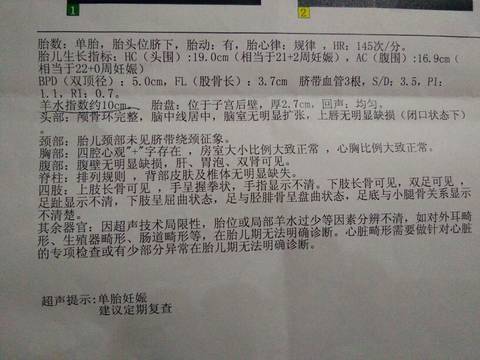 1
2
胎数：单胎，胎头位脐下，胎动：有，胎心律：规律，HR：145次/分。
胎儿生长指标：HC（头围）:19.0cm（相当于21+2周妊娠），AC（腹围）:16.9cm（
相当于22+0周妊娠）
BPD（双顶径）：5.0cm，FL（股骨长）：3.7cm 脐带血管3根，S/D：3.5，PI：
1.1，RI：0.7。
羊水指数约10cm。、胎盘：位于子宫后壁，厚2.7cm，回声：均匀。
头部：颅骨环完整，脑中线居中，脑室无明显扩张，上唇无明显缺损（闭口状态下）
。
颈部：胎儿颈部未见脐带绕颈征象。
胸部：四腔心观"+"字存在，房室大小比例大致正常，心胸比例大致正常。
腹部：腹壁无明显缺损，肝、胃泡、双肾可见。
脊柱：排列规则，背部皮肤及椎体无明显缺失。
四肢：上肢长骨可见，手呈握拳状，手指显示不清。下肢长骨可见，双足可见，
足趾显示不清，下肢呈屈曲状态，足与胫腓骨呈盘曲状态，足底与小腿骨关系显示
不清楚。
其余器官：因超声技术局限性，胎位或局部羊水过少等因素分辨不清，如对外耳畸
形、生殖器畸形、肠道畸形等，在胎儿期无法明确诊断。心脏畸形需要做针对心脏
的专项检查或有少部分异常在胎儿期无法明确诊断。
超声提示:单胎妊娠
建议定期复查